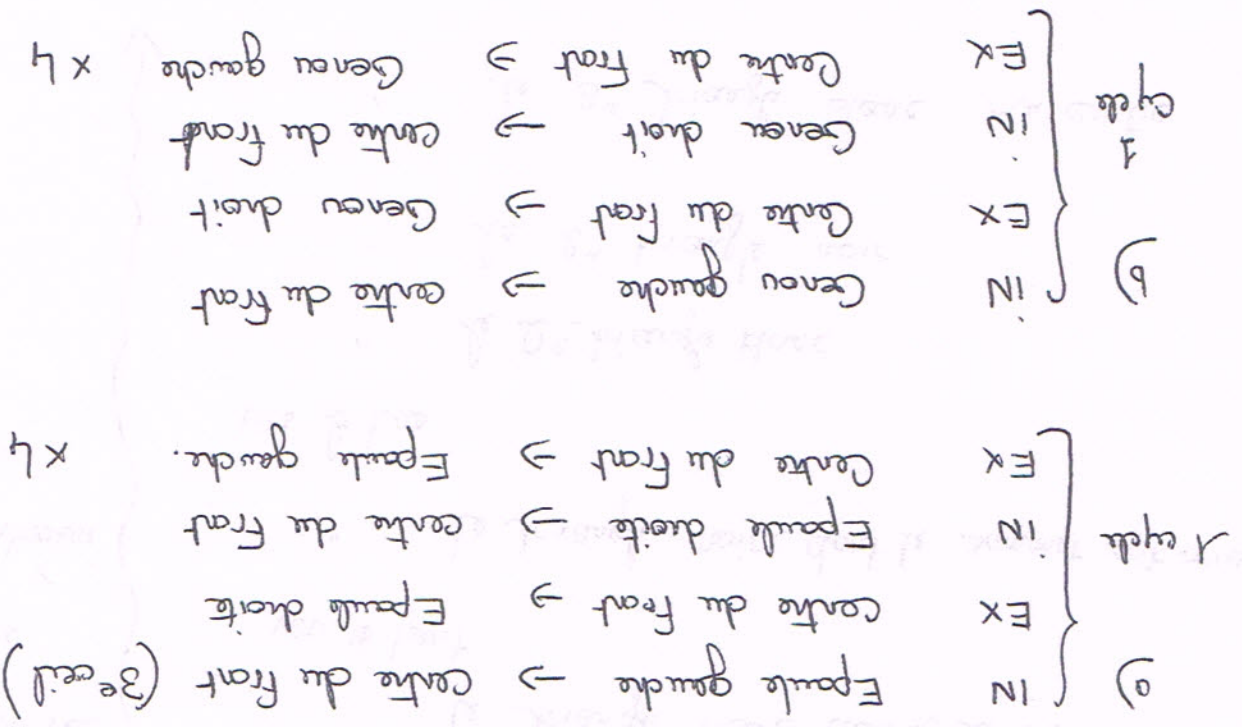 a) IN Epaule gauche → Centre du Front (3e oeil)
EX Centre du Front → Epaule droite
1 cycle IN Epaule droite → Centre du Front
EX Centre du Front → Epaule gauche. x 4
b) IN Genou gauche → Centre du Front
EX Centre du Front → Genou droit
1 cycle IN Genou droit → Centre du Front
EX Centre du Front → Genou gauche x 4